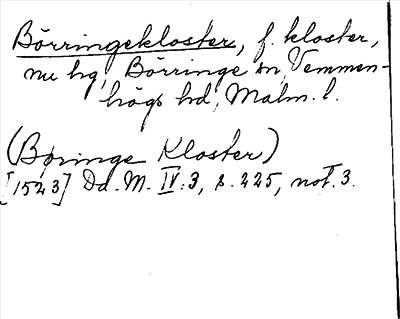 Börringekloster, f. kloster,
nu hg, Börringe sn, Vemmen-
högs hd, Malm. l.
(Børinge Kloster)
[1523] Dd. M. IV:3, s. 225, not. 3.